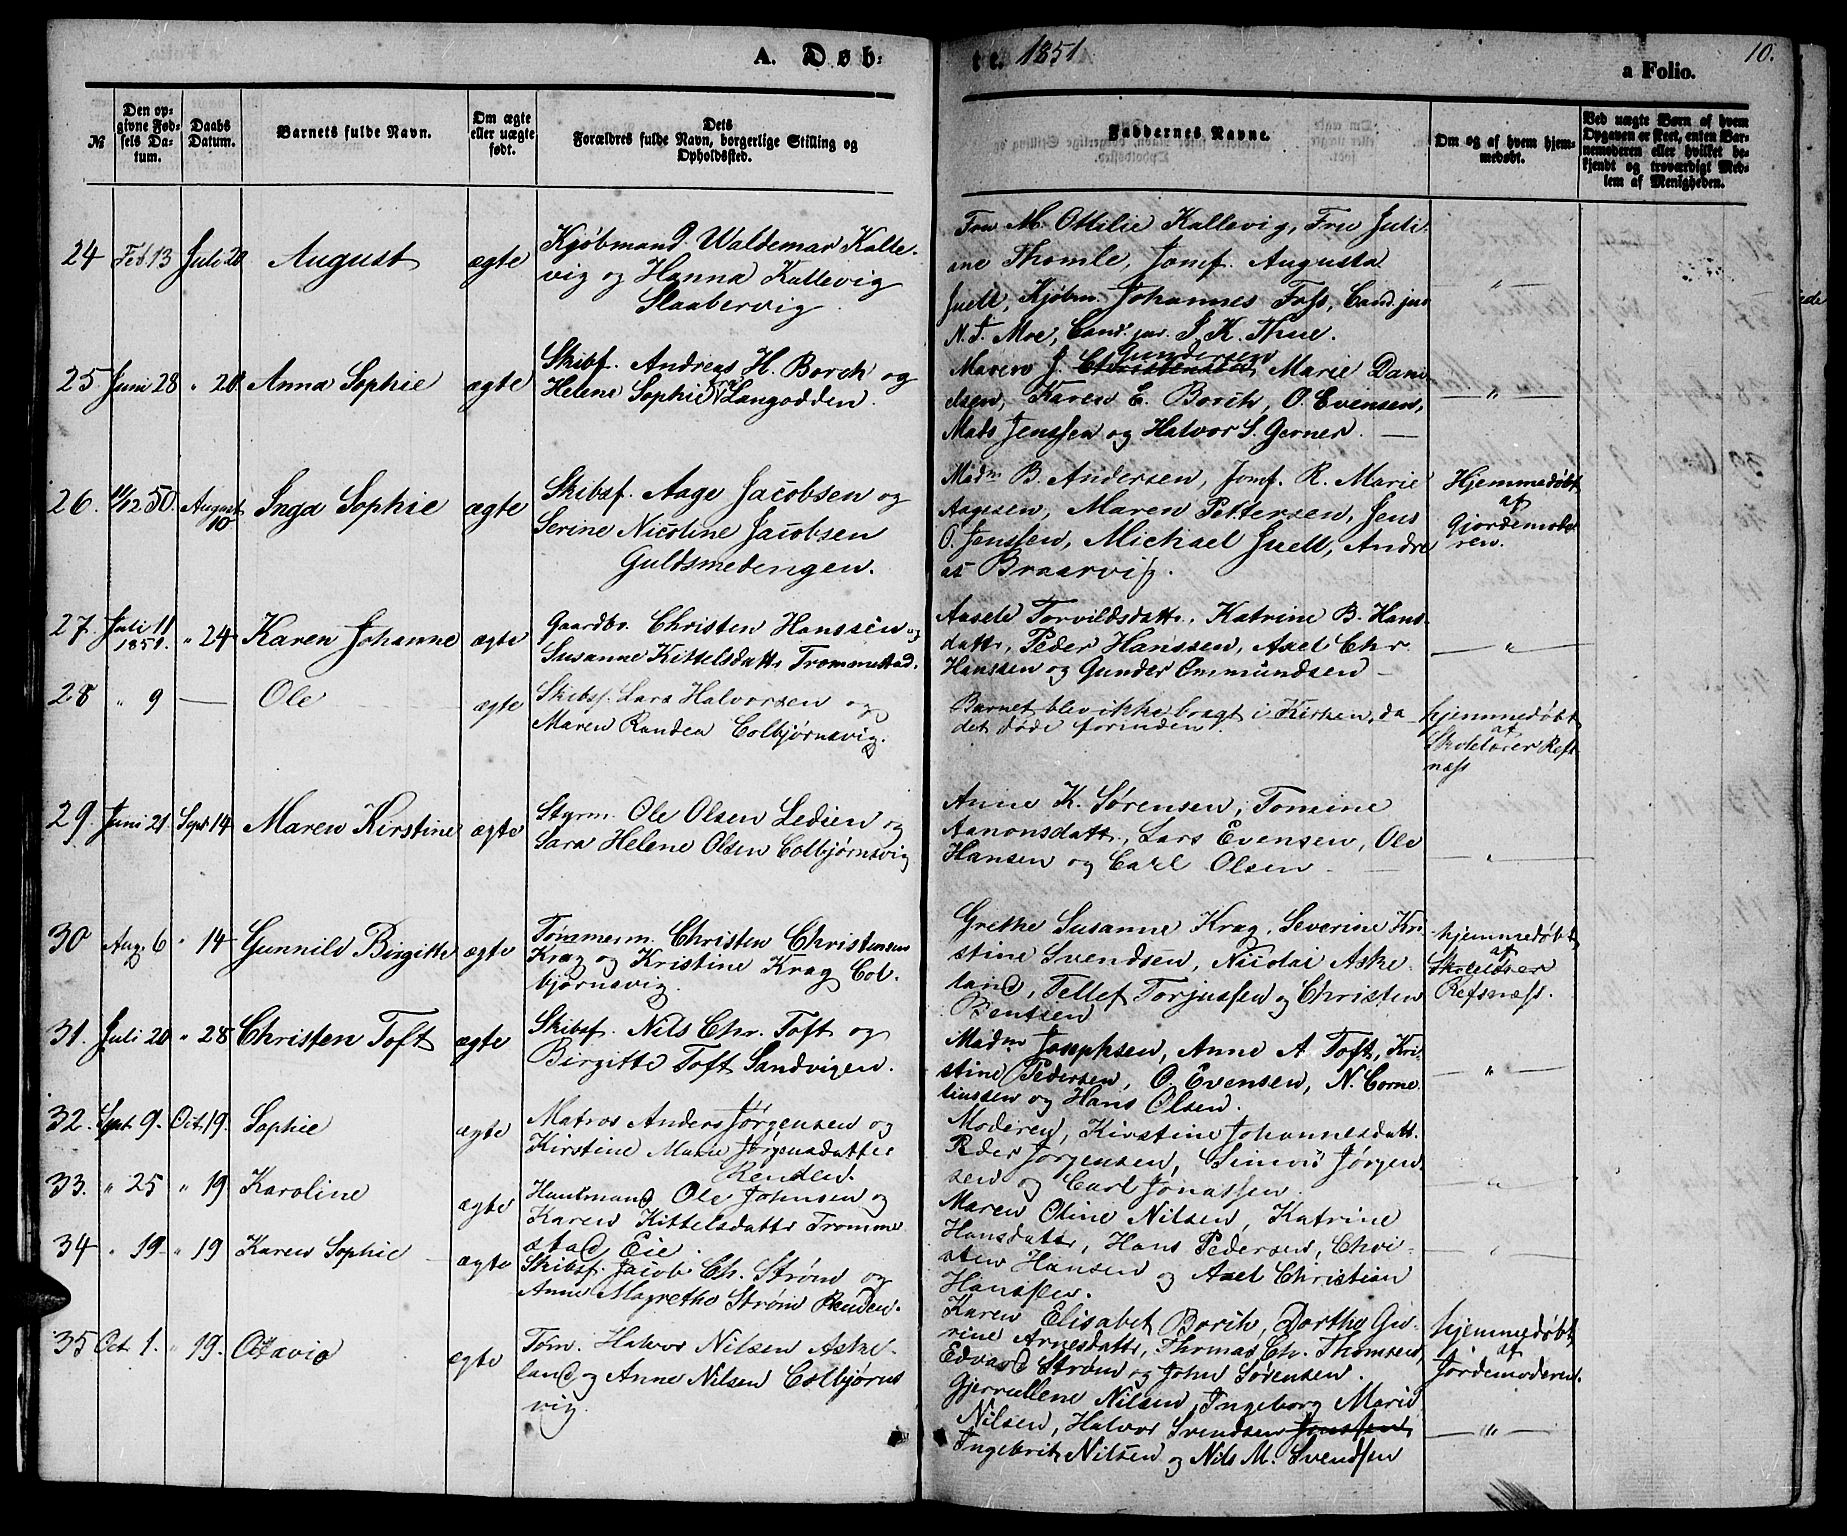 A. Døb-
te. 1851
10.
a Folio.
№
Den op-
givne Fød-
sels Da-
tum.
Daabs
Datum.
Barnets fulde Navn.
Om ægte
eller uægte
født.
Dets
Forældres fulde Navn, borgerlige Stilling og
Opholdssted.
Faddernes Navne.
Om og af hvem hjem-
medøbt.
Ved uægte Børn af hvem
Opgaven er skeet, enten Bar-
nemoderen eller hvilket be-
kjendt og troværdigt Med-
lem af Menigheden.
24 Feb. 13 Juli 20 August ægte
Kjøbmand Waldemar Kalle-
vig og Hanna Kallevig
Slaabervig.
Fru M. Ottilie Kallevig, Fru Juli-
ane Thomle, Jomf. Augusta
Juell, Kjøbm. Johannes Foss, Cand. jur.
N. J. Moe, Cand. jur. J. K. Thue.
— " —
25 Juni 28 " 20 Anna Sophie ægte
Skibsf. Andreas H. Borch og
Helene Sophie Langodden.
Maren J. Christensen Gundersen Marie Dani-
elsen, Karen E. Borch, O. Evensen,
Mads Jenssen og Halvor S. Gerner. —
— " —
26. 11/12 50. August 10 Inga Sophie ægte
Skibsf. Aage Jacobsen og
Serine Nicoline Jacobsen
Guldsmedengen.
Madm B. Andersen, Jomf. R. Marie
Aagesen, Maren Pettersen, Jens
O. Jenssen, Michael Juell, Andre
as Braarvig.
Hjemmedøbt
af
Gjordemode-
ren.
27. Juli 11 1851. " 24 Karen Johanne ægte
Gaardbr. Christen Hanssen og
Susanne Kittelsdattr Trommestad.
Aasele Torvildsdattr, Katrine B. Hans-
dattr, Peder Hanssen, Axel Chr.
Hanssen og Gunder Ommundsen —
— " —
28 " 9 — Ole ægte
Skibsf. Lars Halvorsen og
Maren Randea Colbjørnsvig.
Barnet blev ikke bragt i Kirken, da
det døde forinden.
hjemmedøbt
af
Skolelærer Refs-
næss
29. Juni 21 Sept. 14 Maren Kirstine ægte
Styrm. Ole Olsen Ledien og
Sara Helene Olsen Colbjørnsvig
Anne K. Sørensen, Tomine
Aanonsdatt., Lars Evensen, Ole
Hansen og Carl Olsen —
— " —
30 Aug. 6 " 14 Gunnild Birgitte ægte
Tømmerm. Christen Christensen
Krag og Kristine Krag Col-
bjørnsvig.
Grethe Susanne Krag, Severine Kri-
stine Svendsen, Nicolai Aske-
land, Tellef Torjussen og Christen
Bentsen
hjemmedøbt
af
Skolelærer
Refsnæss.
31. Juli 20 " 28 Christen Toft ægte
Skibsf. Nils Chr. Toft og
Birgitte Toft Sandvigen.
Madm Josephsen, Anne A Toft, Kri-
stine Pedersen, O. Evensen, N. Corne-
liussen og Hans Olsen.
— " —
32. Sept. 9. Oct. 19. Sophie ægte
Matros Anders Jørgensen og
Kirstine Marie Jørgensdatter
Renden.
Moderen, Kirstine Johannesdatt.
Peder Jørgensen, Simon Jørgen-
sen og Carl Jonassen.
— " —
33. " 25 " 19 Karoline ægte
Huusmand Ole Johnsen og
Karen Kittelsdattr Tromme
stad Eie.
Maren Oline Nilsen, Katrine
Hansdattr, Hans Pedersen, Chri-
sten Hansen og Axel Christian
Hanssen.
— " —
34 " 19 " 19 Karen Sophie ægte
Skibsf. Jacob Ch. Strøm og
Anne Magrethe Strøm Renden.
Karen Elisabet Borch, Dorthe Gu-
rine Arnesdattr, Thomas Ch. Thomsen,
Edvard Strøm og John Sørensen.
hjemmedøbt
af
Jordemoderen.
35 Oct. 1. " 19. Octavia ægte
Tøm. Halvor Nilsen Aske-
land og Anne Nilsen Colbjørns
vig.
Gjerullene Nilsen, Ingeborg Marie
Nilsen, Halvor Svendsen Jonssen,
Ingebrit Nilsen og Nils M. Svendsen
— " —